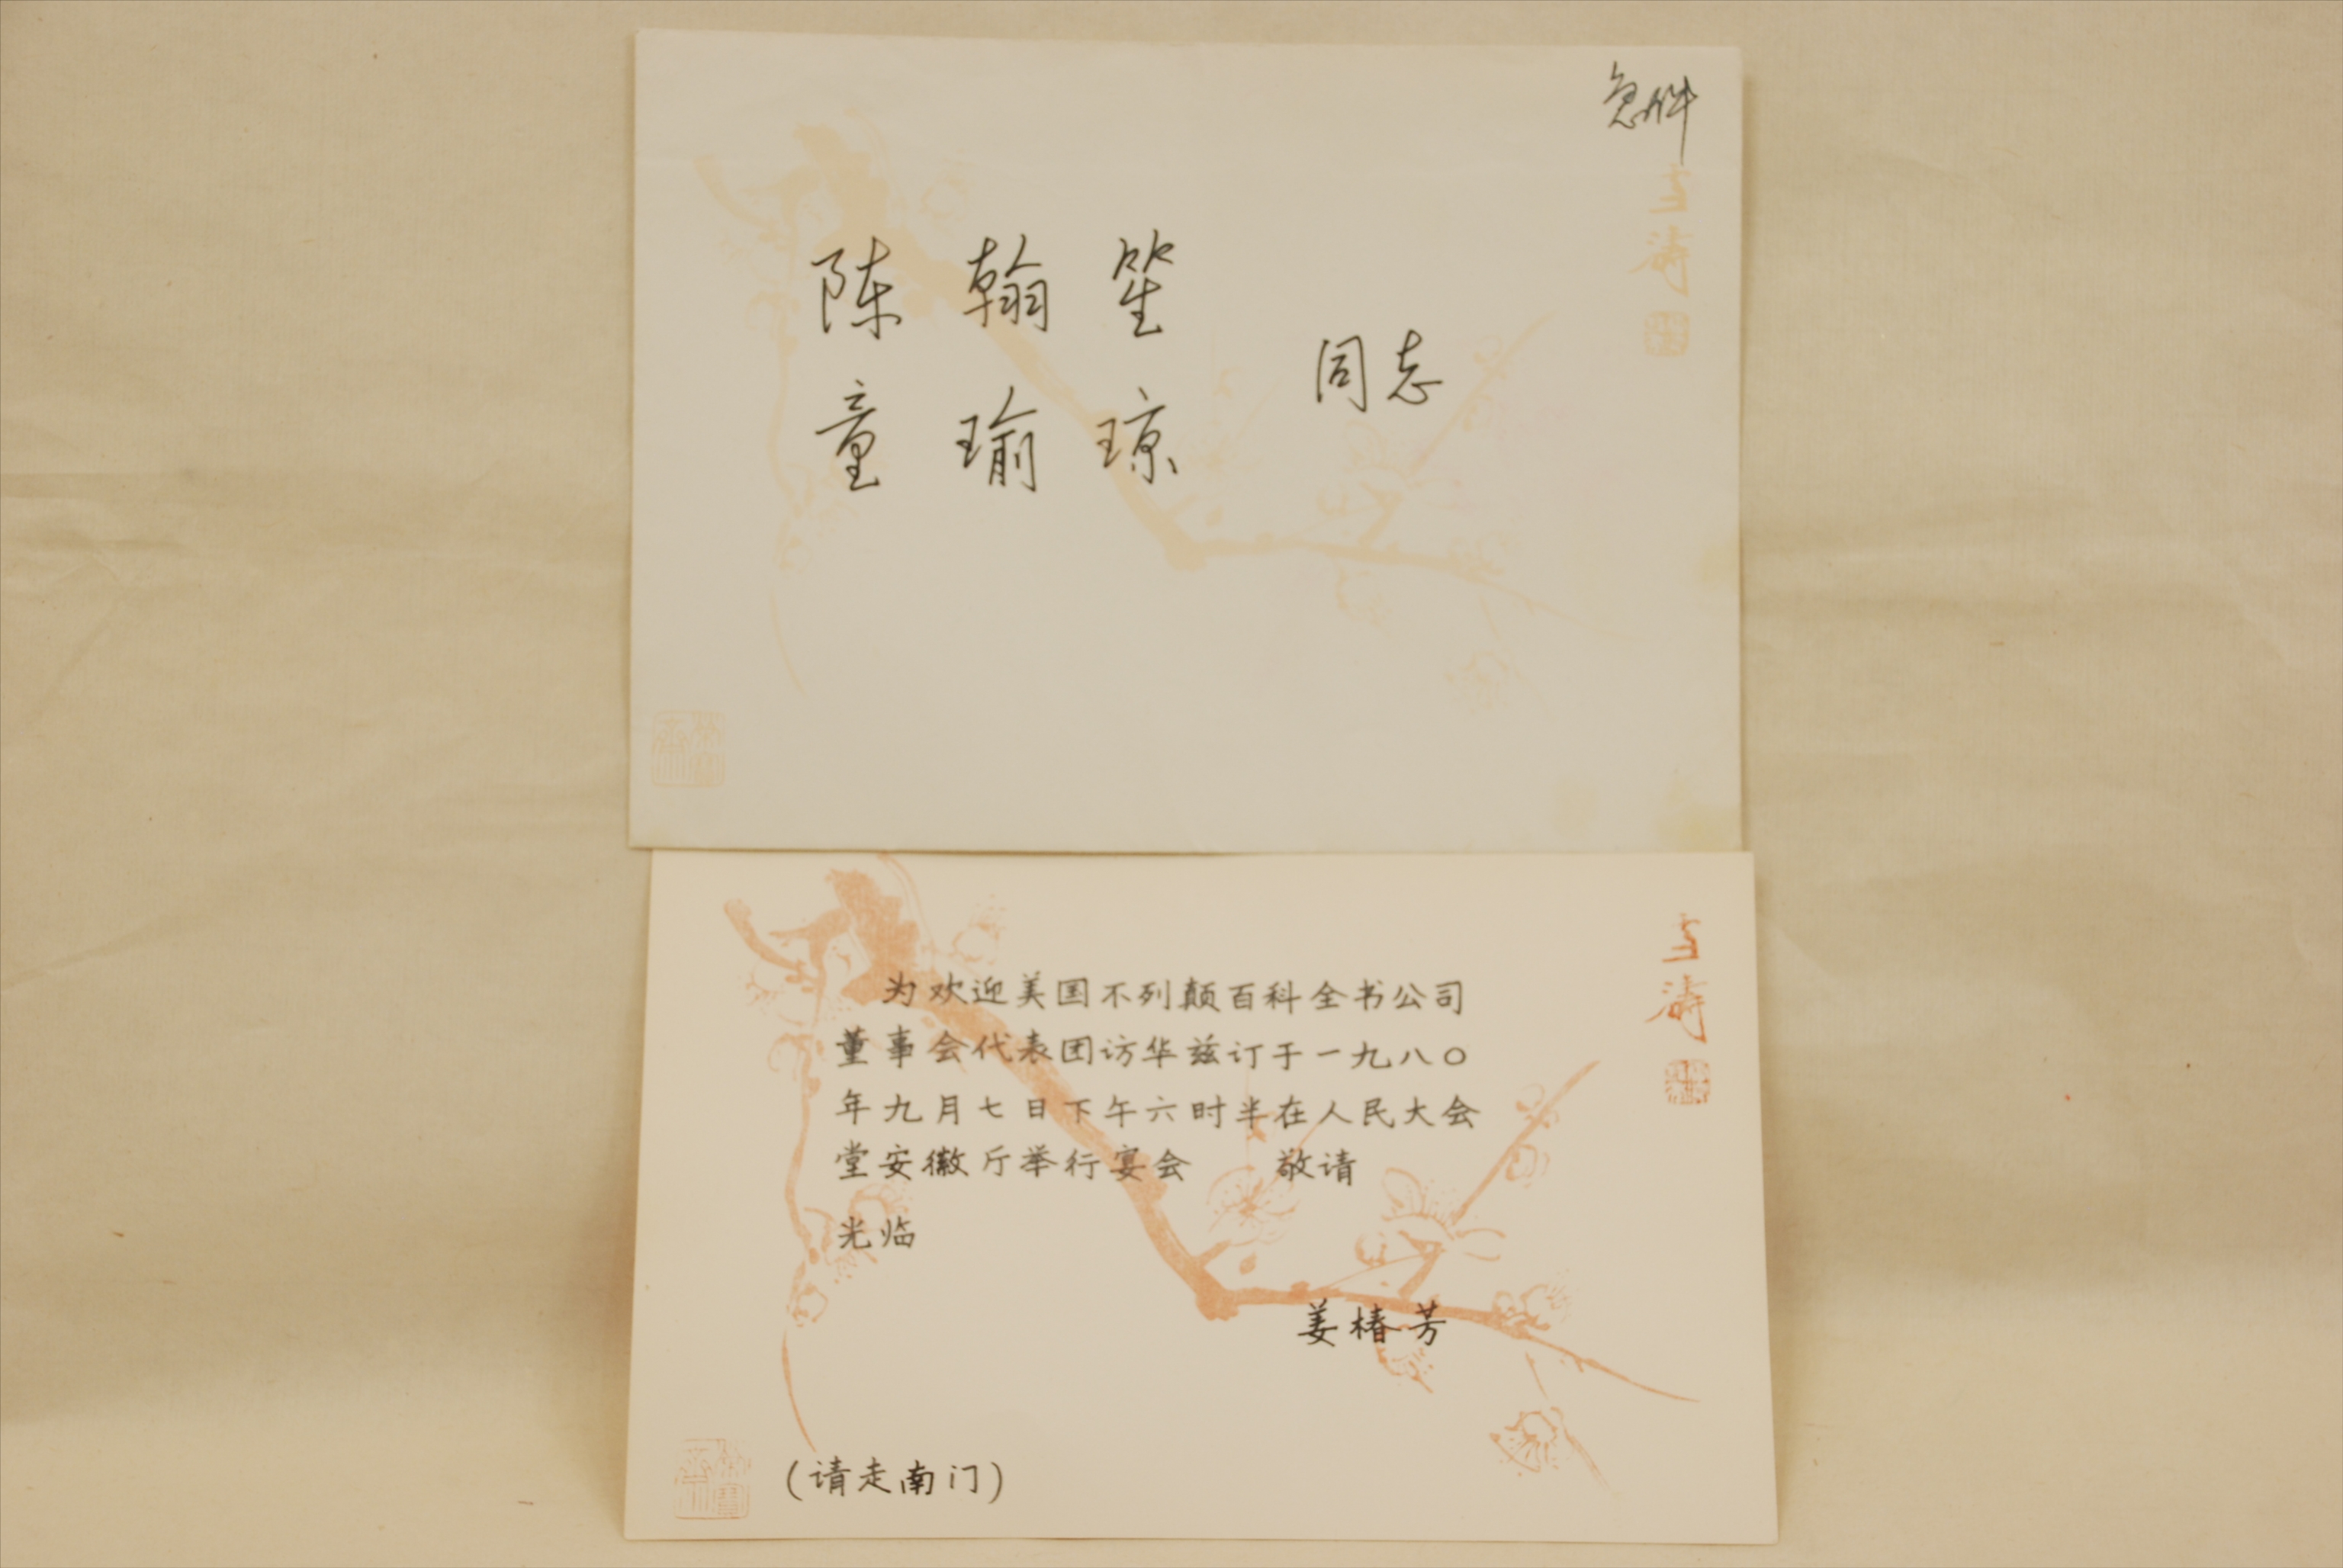 急件
陈翰笙
同志
童瑜琼
为欢迎美国不列颠百科全书公司
董事会代表团访华兹订于一九八〇
年九月七日下午六时半在人民大会
堂安徽厅举行宴会 敬请
光临
姜椿芳
(请走南门)